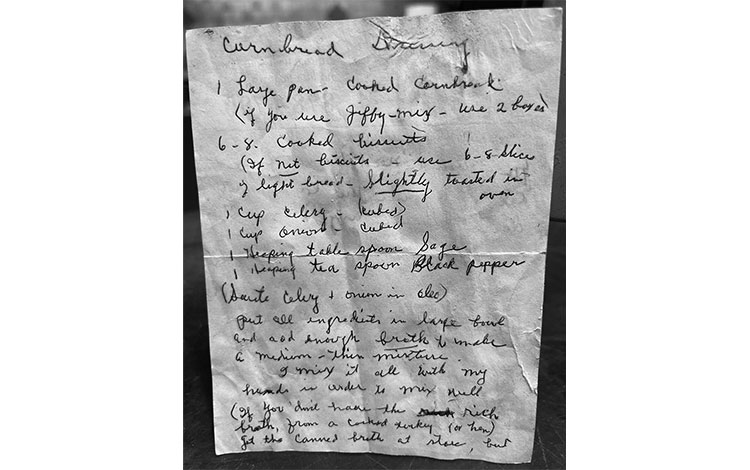 Cornbread Dressing
1 Large pan - Cooked Cornbread
(if you use Jiffy-mix - use 2 boxes)
6-8- Cooked biscuits
(If not biscuits - use 6-8 slices
of light bread - Slightly toasted in
oven
1 Cup Celery - (cubed)
1 Cup onion - cubed
1 Heaping table spoon Sage
1 Heaping tea spoon Black pepper
(Saute Celery + onion in oleo)
put all ingredients in large bowl
and add enough broth to make
a medium - thin mixture.
I mix it all with my
hands in order to mix well
(If you don't have the rich
broth, from a cooked turkey (or hen)
get the canned broth at store, but